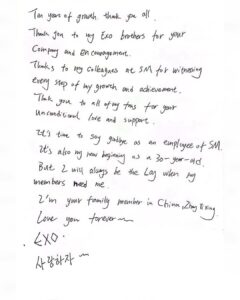 Ten years of growth thank you all.
Thank you to my Exo brothers for your
Company and encouragement.
Thanks to my colleagues at SM for witnessing
every step of my growth and achievement.
Thank you to all of my fans for your
unconditional love and support.
It's time to say goodbye as an employee of SM.
It's also my new beginning as a 30-year-old.
But I will always be the Lay when my
members need me.
I'm your family member in China Zhang Yixing
Love you forever~
EXO
사랑하자~